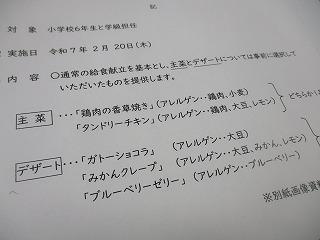 記
対 象 小学校6年生と学級担任
実施日 令和7年2月20日(木)
内 容 ○通常の給食献立を基本とし、主菜とデザートについては事前に選択して
いただいたものを提供します。
主 菜 ・・・「鶏肉の香草焼き」(アレルゲン・・鶏肉、小麦)
「タンドリーチキン」(アレルゲン・・鶏肉、大豆、レモン)
どちらか
デザート ・・・「ガトーショコラ」 (アレルゲン・・大豆)
「みかんクレープ」 (アレルゲン・・大豆、みかん、レモン)
「ブルーベリーゼリー」(アレルゲン・・ブルーベリー)
※別紙画像資料